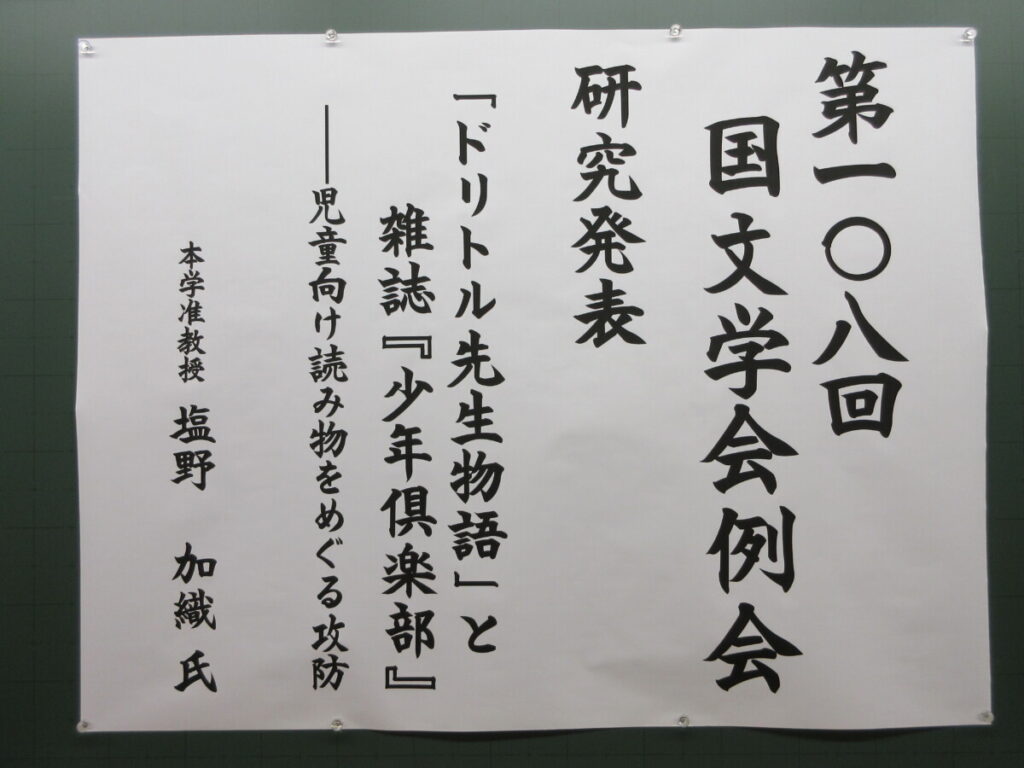 第一〇八回
国文学会例会
研究発表
「ドリトル先生物語」と
雑誌『少年倶楽部』
――児童向け読み物をめぐる攻防
本学准教授 塩野 加織 氏